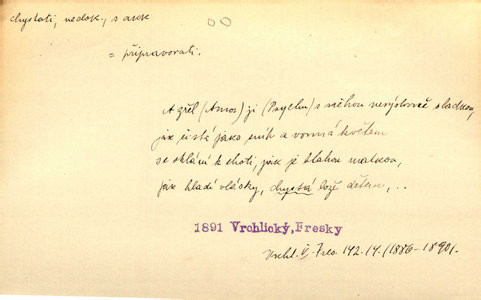 chystati, nedok., s auk
= připravovati.
A zřel (Amor) ji (Psychu) s něhou nevýslovně sladkou,
jak čistá jako sníh a vonná květem
se sklání k choti, jak je blahou matkou,
jak hladí vlásky, chystá lože dětem, ..
1891 Vrchlický, Fresky
Vrchl. V. Fres 142.14. (1886-1890).